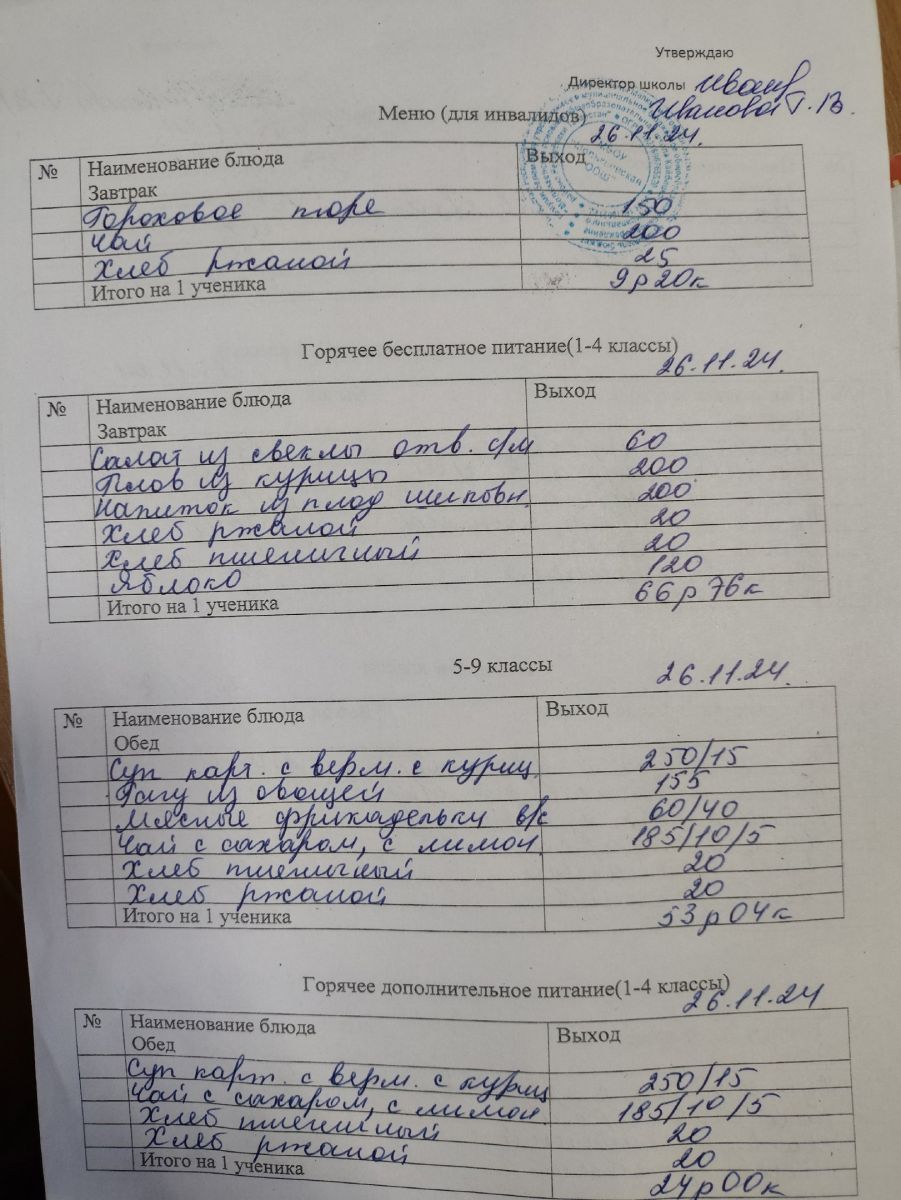 Утверждаю
Директор школы
Иванова Г.В.
Меню (для инвалидов)
26.11.24.
№ Наименование блюда Выход
Завтрак
Гороховое пюре 150
Чай 200
Хлеб ржаной 25
Итого на 1 ученика 9р20к
Горячее бесплатное питание(1-4 классы)
26.11.24.
№ Наименование блюда Выход
Завтрак
Салат из свеклы отв. с/м 60
Плов из курицы 200
Напиток из плод шиповн. 200
Хлеб ржаной 20
Хлеб пшеничный 20
Яблоко 120
Итого на 1 ученика 66р76к
5-9 классы 26.11.24.
№ Наименование блюда Выход
Обед
Суп карт. с верм. с куриц. 250/15
Рагу из овощей 155
Мясные фрикадельки в/с 60/40
Чай с сахаром, с лимон. 185/10/5
Хлеб пшеничный 20
Хлеб ржаной 20
Итого на 1 ученика 53р04к
Горячее дополнительное питание(1-4 классы)
26.11.24
№ Наименование блюда Выход
Обед
Суп карт. с верм. с куриц 250/15
Чай с сахаром, с лимон 185/10/5
Хлеб пшеничный 20
Хлеб ржаной 20
Итого на 1 ученика 24р00к